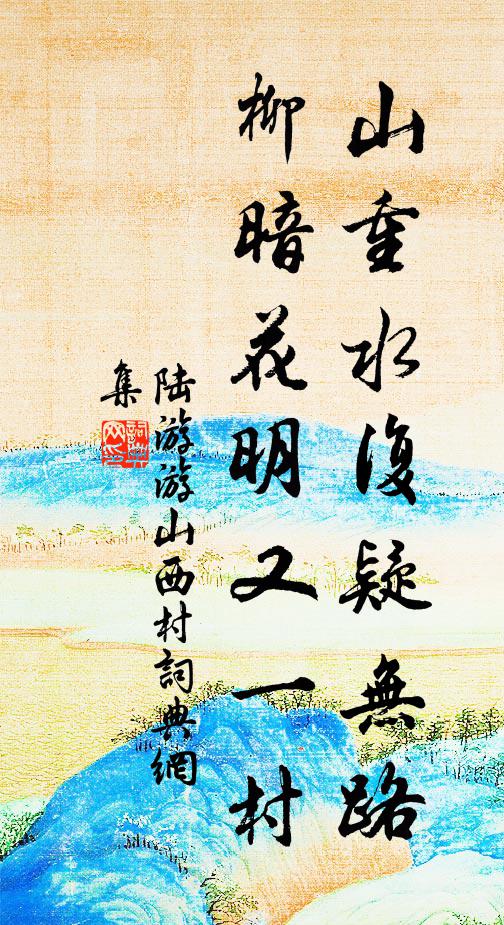 山重水復疑無路
柳暗花明又一村
陸游游山西村詞典網
集